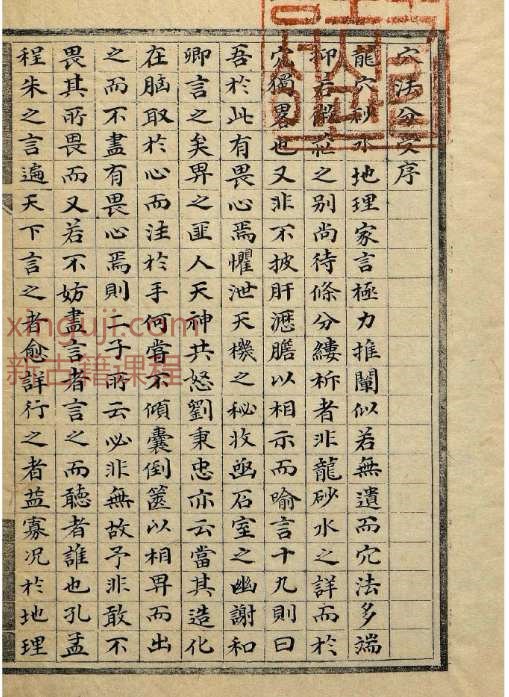 穴法分受序
龍穴砂水地理家言極力推闡似若無遺而穴法多端
抑若之別尚待條分縷析者非龍砂水之詳而於
穴獨畧也又非不披肝瀝膽以相示而喻言十九則曰
吾於此有畏心焉懼泄天機之秘收凾石室之幽謝和
卿言之矣畀之匪人天神共怒劉秉忠亦云當其造化
在腦取於心而注於手何嘗不傾囊倒篋以相畀而出
之而不盡有畏心焉則二子所云必非無故予非敢不
畏其所畏而又若不妨盡言者言之而聽者誰也孔孟
程朱之言遍天下言之者愈詳行之者益寡况於地理
xinguji.com
新古籍课程